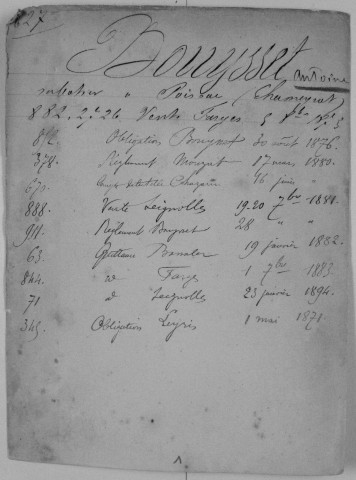 827
Bouysset Antoine
sabotier a Poissac (Chameyrat)
882. 2e 26 Vente Farges 5 8bre
812. Obligation Bouysset 30 août 1876.
378. Règlement Mouzat 17 mars 1880.
673. 16 juin
888. Vente Leignolles 19-20 7bre 1881.
911. Règlement Bouysset 28 " "
63. Quittance 19 janvier 1882.
844. de Farges 1 7bre 1883.
71 d Leignolles 23 janvier 1894.
345. Obligation Leyris 1 mai 1871.